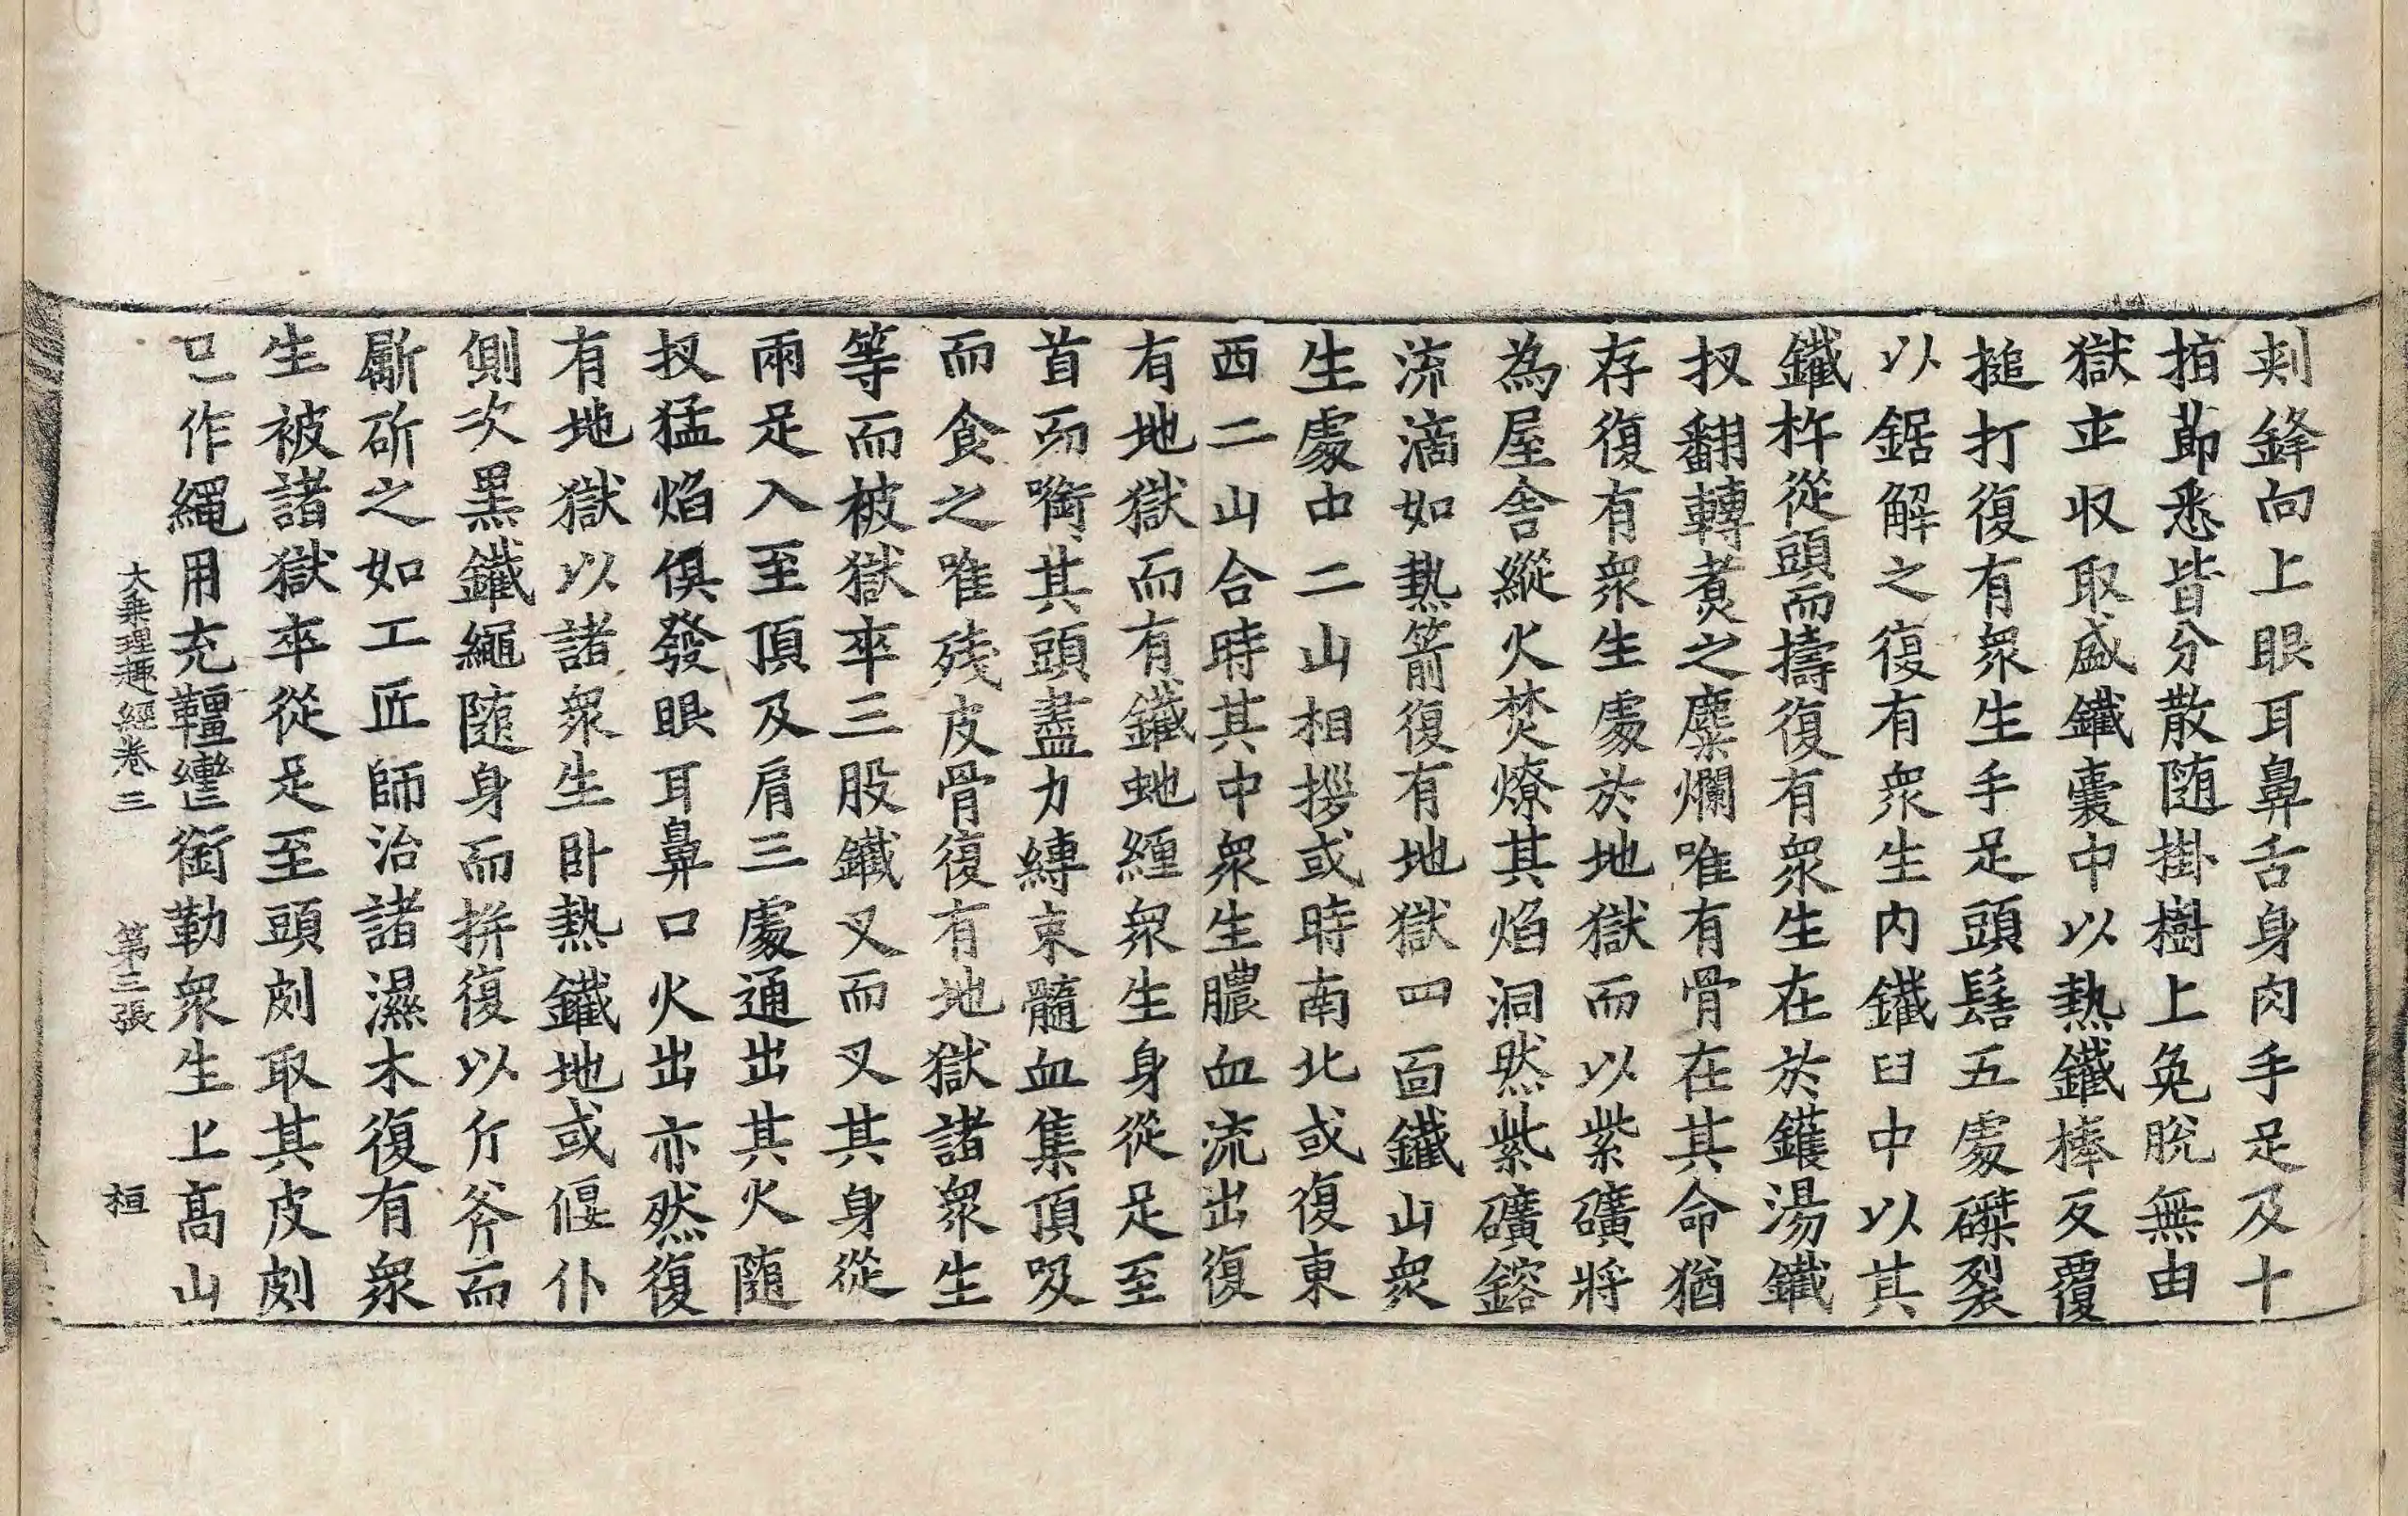 刾鋒向上眼耳鼻舌身肉手足及十
指莭悉皆分散随掛樹上免脫無由
獄卒收取盛鐵囊中以熱鐵棒反覆
搥打復有衆生手足頭髻五處磔裂
以鋸解之復有衆生內鐵臼中以其
鐵杵從頭而擣復有衆生在於鑊湯鐵
扠翻轉煮之麋爛唯有骨在其命猶
存復有衆生處於地獄而以紫礦將
為屋舍縱火焚燎其焰洞然紫礦鎔
流滴如熱箭復有地獄四面鐵山衆
生處中二山相拶或時南北或復東
西二山合時其中衆生膿血流出復
有地獄而有鐵虵纏衆生身從足至
首而㗸其頭盡力縳束髓血集頂吸
而食之唯残皮骨復有地獄諸衆生
等而被獄卒三股鐵叉而叉其身從
兩足入至頂及肩三處通出其火随
扠猛焰俱發眼耳鼻口火出亦然復
有地獄以諸衆生卧熱鐵地或偃仆
側次黑鐵繩随身而拼復以斤斧而
斸斫之如工匠師治諸濕木復有衆
生被諸獄卒從足至頭剠取其皮剠
已作繩用充韁轡銜勒衆生上高山
大乗理趣經卷三　第三張　桓